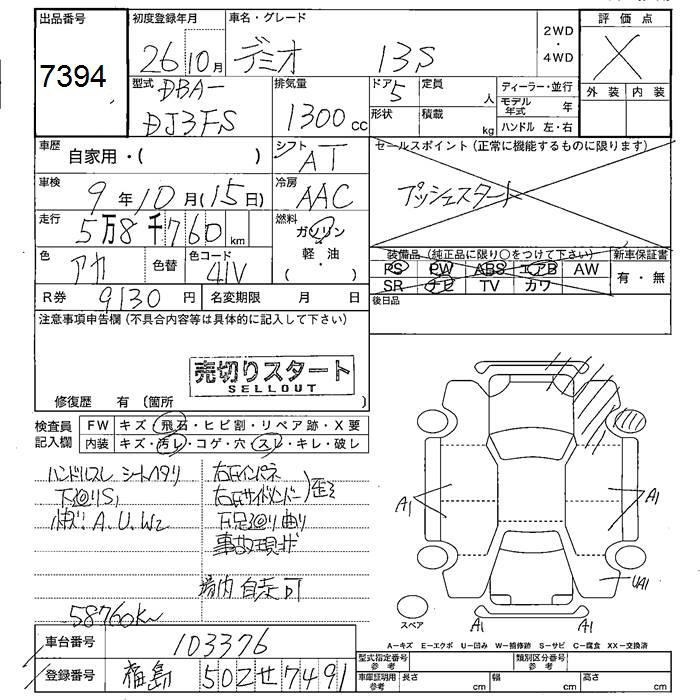 出品番号
7394
初度登録年月
26 10月
車名・グレード
デミオ 13S
2WD
・
4WD
評価点
X
外装 内装
型式
DBA-
DJ3FS
排気量
1300cc
ドア
5
定員
人
形状
積載
kg
ディーラー・並行
モデル年式 年
ハンドル 左・右
車歴
自家用・( )
シフト
AT
セールスポイント(正常に機能するものに限ります)
プッシュスタート
車検
9年10月(15日)
冷房
AAC
走行
5万8千760km
燃料
ガソリン
軽・油
・
( )
色
アカ
色替
色コード
41V
装備品(純正品に限り○をつけて下さい)
PS PW ABS エアB AW
SR ナビ TV カワ
新車保証書
有・無
R券 9130円
名変期限 月 日
後日品
注意事項申告欄(不具合内容等は具体的に記入して下さい)
売切りスタート
SELLOUT
修復歴 有(箇所 )
検査員
記入欄
FW キズ・飛石・ヒビ割・リペア跡・X要
内装 キズ・汚レ・コゲ・穴・スレ・キレ・破レ
ハンドルスレ シートヘタリ
下廻りS1
A.U.W2
右Fインパネ
歪ミ
下足廻り曲り
事故現状
場内自走可
58760km
A1
A1
UA1
A1
A1
スペア
A=キズ E=エクボ U=凹み W=補修跡 S=サビ C=腐食 XX=交換済
車台番号
103376
登録番号
福島 502 せ 7491
型式指定番号
参考
類別区分番号
参考
車庫証明用
参考
長さ cm
幅 cm
高さ cm